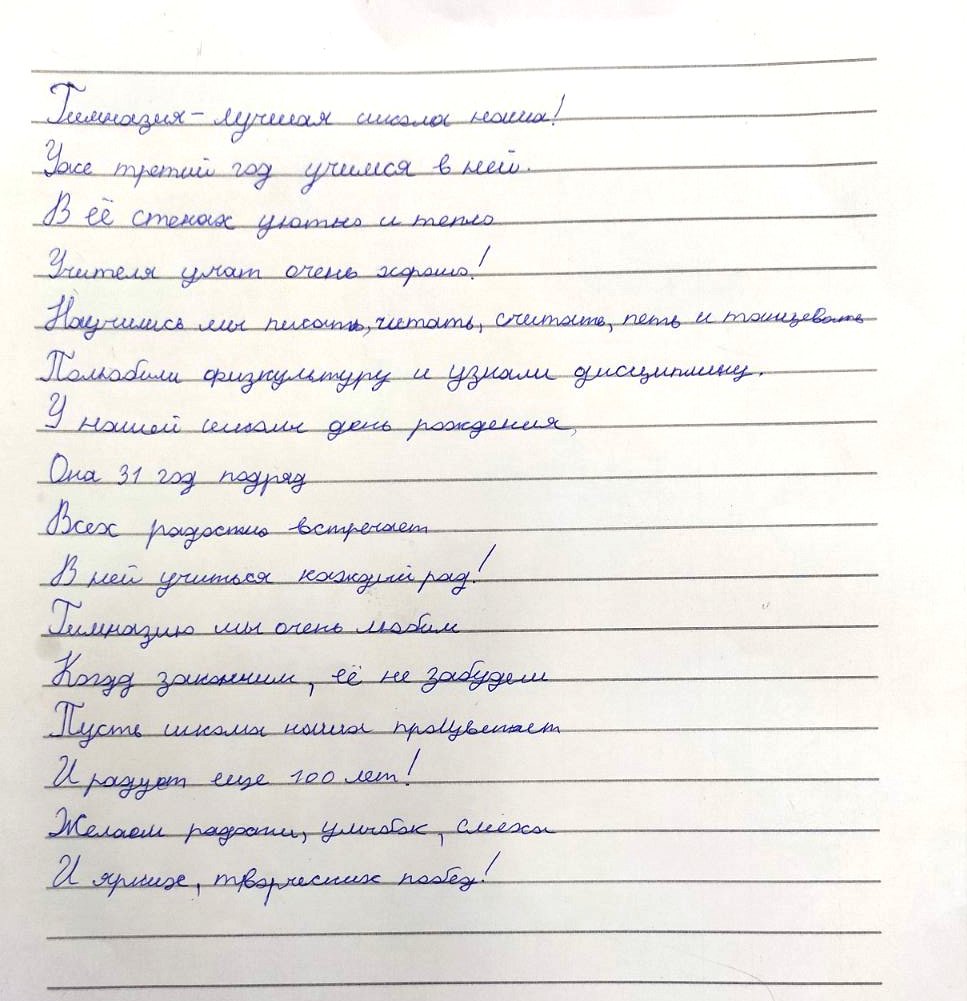 Гимназия – лучшая школа наша!
Уже третий год учимся в ней.
В её стенах уютно и тепло
Учителя учат очень хорошо!
Научились мы писать, читать, считать, петь и танцевать
Полюбили физкультуру и узнали дисциплину.
У нашей школы день рождения,
Она 31 год подряд
Всех радостно встречает
В ней учиться каждый рад!
Гимназию мы очень любим
Когда закончим, её не забудем
Пусть школа наша процветает
И радует еще 100 лет!
Желаем радости, улыбок, смеха
И ярких, творческих побед!